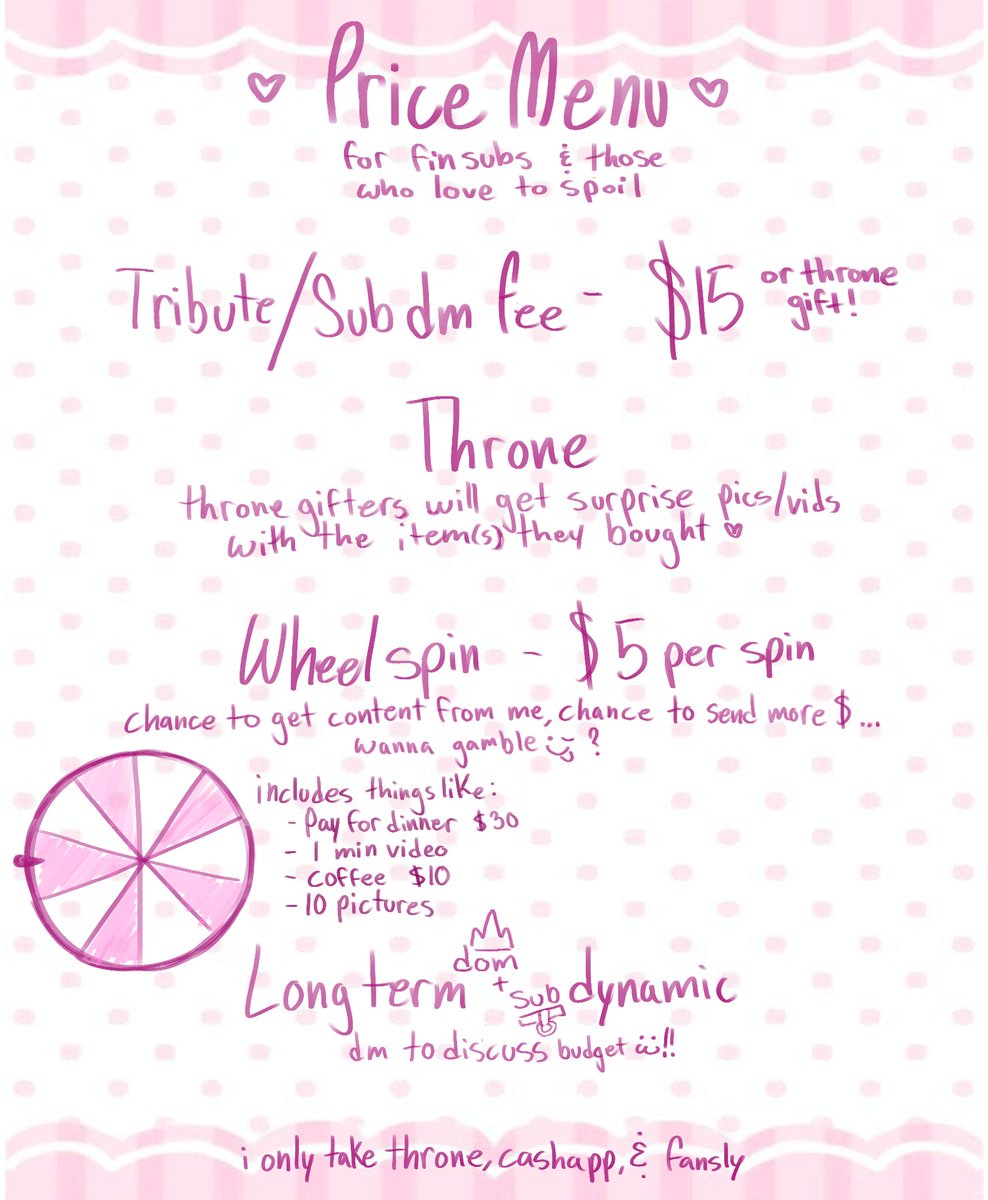 ♡ Price Menu ♡
for finsubs & those
who love to spoil
Tribute/Sub dm fee - $15 or throne
gift!
Throne
throne gifters will get surprise pics/vids
with the item(s) they bought ♡
Wheel spin - $5 per spin
chance to get content from me, chance to send more $...
wanna gamble ?
includes things like:
- Pay for dinner $30
- 1 min video
- coffee $10
- 10 pictures
Long term dom + sub dynamic
dm to discuss budget !!
i only take throne, cashapp, & fansly